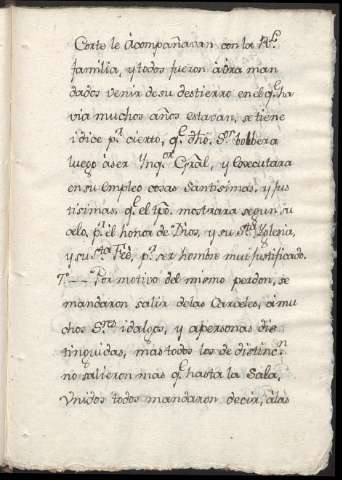 Corte le Acompañavan con la Rl.
familia, y todos fueron àora man
dados venir de su destierro en el q.e ha
via muchos años estavan, se tiene
i dice p.r cierto, q.e dho, S.or bolbera
luego àser Ynq.or Gral, y Executara
en su empleo cosas Santisimas, y jus
tisimas, q.e el tpo. mostrara segun su
celo, p.r el honor de Dios, y su S.ta Yglesia,
y su S.ta Feè, p.r ser hombre mui justificado.
7.o Por motivo del mismo perdon, se
mandaron salir delas Carceles, à mu
chos S.res idalgos, y apersonas dis
tinguidas, mas todos los de distinc.n
no salieron mas q.e hasta la Sala,
Vnidos todos mandaron decir, àlas